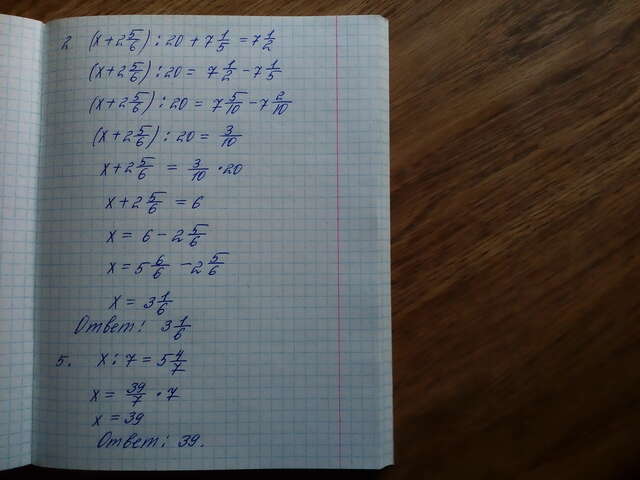 2 (x + 2 5/6) : 20 + 7 1/5 = 7 1/2
(x + 2 5/6) : 20 = 7 1/2 - 7 1/5
(x + 2 5/6) : 20 = 7 5/10 - 7 2/10
(x + 2 5/6) : 20 = 3/10
x + 2 5/6 = 3/10 · 20
x + 2 5/6 = 6
x = 6 - 2 5/6
x = 5 6/6 - 2 5/6
x = 3 1/6
Ответ: 3 1/6
5. x : 7 = 5 4/7
x = 39/7 · 7
x = 39
Ответ: 39.